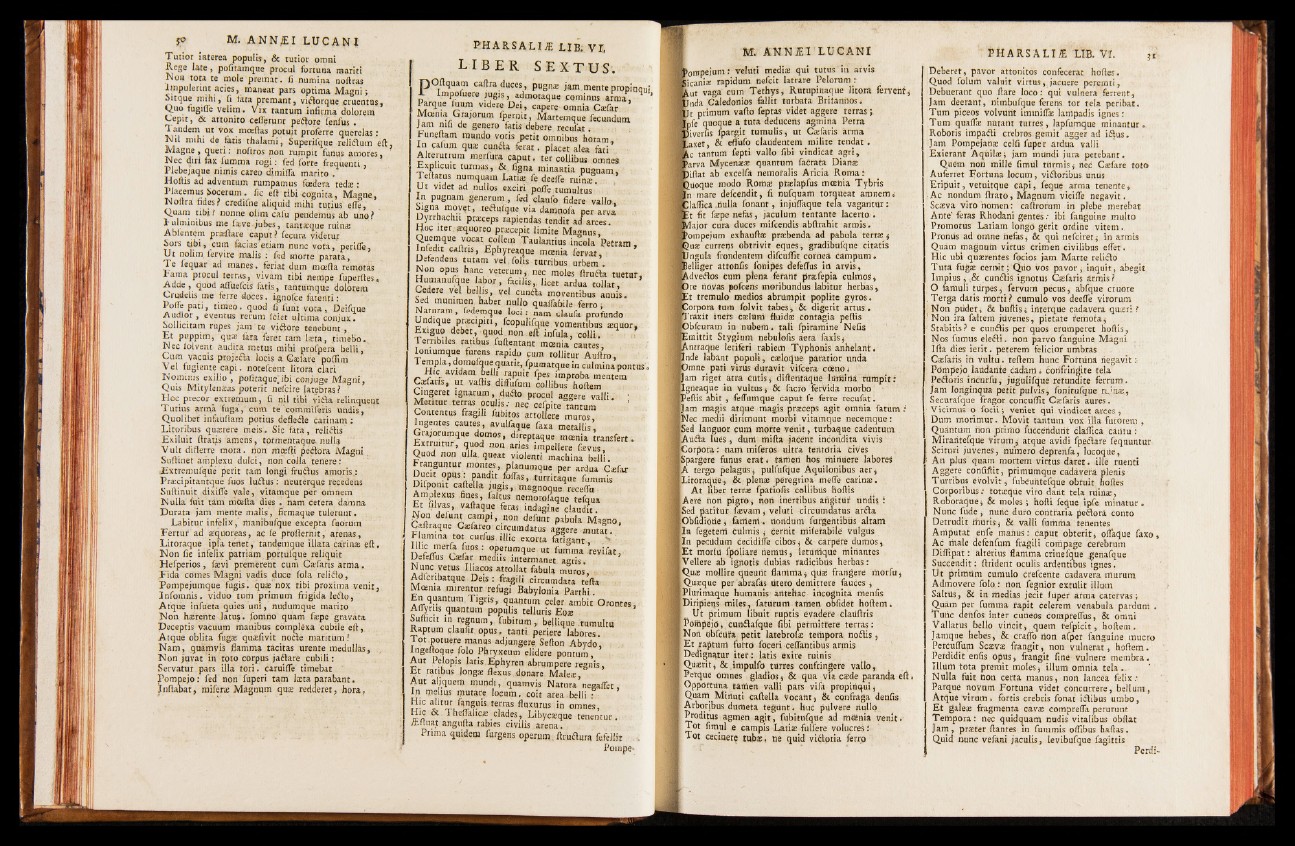 50 M. ANNÆI LUCANI
Tutior interea populis, & tutior omni
Rege late, positamque procul fortuna mariti
Non tota te mole premat. si numina nostras
Impulerint acies, maneat pars optima Magni;
Sitque mihi, si fata premant, victorque cruentus,
Quo fugisse velim. Vix tantum infirma dolorem
Cepit, & attonito cesserunt pectore sensus.
Tandem ut vox mœstas potuit proferre querelas:
Nil mihi de fatis thalami, Superisque relictum est,
Magne, queri: nostros non rumpit funus amores,
Nec diri fax summa rogi: sed sorte frequenti,
Plebejaque nimis careo dimissa marito.
Hostis ad adventum rumpamus fœdera tedæ:
Placemus Socerum. sic est tibi cognita, Magne,
Nostra fides? credisne aliquid mihi tutius esse,
Quam tibi? nonne olim casu pendemus ab uno?
Fulminibus me sæve jubes, tantæque ruinæ
Absentem præstare caput? secura videtur
Sors tibi, cum facias etiam nunc vota, perisse,
Ut nolim servire malis: sed morte parata,
Te sequar ad manes. feriat dum mœsta remotas
Fama procul terras, vivam tibi nempe superstes.
Adde, quod assuescis fatis, tantumque dolorem
Crudelis me ferre doces. ignosce fatenti:
Posse pati, timeo. quod si sunt vota, Deisque
Audior, eventus rerum sciet ultima conjux.
Sollicitam rupes jam te victore tenebunt,
Et puppim, quæ fata feret tam læta, timebo.
Nec solvent audita metus mihi prospera belli,
Cum vacuis projecta locis a Cæsare possim
Vel fugiente capi. notescent litora clari
Nominis exilio, positaque ibi conjuge Magni,
Quis Mitylenæas poterit nescire latebras?
Hoc precor extremum, si nil tibi victa relinquent
Tutius arma fuga, cum te commiseris undis,
Quolibet infaustam potius deflecte carinam:
Litoribus quærere meis. Sic fata, relictis
Exiluit stratis amens, tormentaque nulla
Vult differre mora. non mœsti pectora Magni
Sustinet amplexu dulci, non colla tenere:
Extremusque perit tam longi fructus amoris:
Præcipitantque suos luctus: neuterque recedens
Sustinuit dixisse vale, vitamque per omnem
Nulla fuit tam mœsta dies. nam cetera damna
Durata jam mente malis, firmaque tulerunt.
Labitur infelix, manibusque excepta suorum
Fertur ad æquoreas, ac se prosternit, arenas,
Litoraque ipsa tenet, tandemque illata carinæ est.
Non sic infelix patriam portusque reliquit
Hesperios, sævi premerent cum Cæsaris arma.
Fida comes Magni vadis duce sola relicto,
Pompejumque fugis. quæ nox tibi proxima venit,
Insomnis. viduo tum primum frigida lecto,
Atque insueta quies uni, nudumque marito
Non hærente latus. somno quam sæpe gravata
Deceptis vacuum manibus complexa cubile est,
Atque oblita fugæ quæsivit nocte maritum!
Nam, quamvis flamma tacitas urente medullas,
Non juvat in toto corpus jactare cubili:
Servatur pars illa tori. caruisse timebat
Pompejo: sed non superi tam læta parabant.
Instabat, miseræ Magnum quæ redderet, hora.
PHARSALIÆ LIB. VI.
LIBER SEXTUS.
POstquam castra duces, pugnæ jam mente propinqui,
Imposuere jugis, admotaque cominus arma,
Parque suum videre Dei, capere omnia Cæsar
Mœnia Grajorum spernit, Martemque secundum
Jam nisi de genero fatis debere recusat.
Funestam mundo votis petit omnibus horam,
In casum quæ cuncta ferat. placet alea fati
Alterutrum mersura caput. ter collibus omnes
Explicuit turmas, & signa minantia pugnam,
Testatus numquam Latiæ se deesse ruinæ.
Ut videt ad nullos exciri posse tumultus
In pugnam generum, sed clauso fidere vallo,
Signa movet, tectusque via damnosa per arva
Dyrrhachii præceps rapiendas tendit ad arces.
Hoc iter æquoreo præcepit limite Magnus,
Quemque vocat collem Taulantius incola Petram,
Insedit castris, Ephyreaque mœnia servat,
Defendens tutam vel solis turribus urbem.
Non opus hanc veterum, nec moles structa tuetur,
Humanusque labor, facilis, licet ardua tollat,
Cedere vel bellis, vel cuncta moventibus annis.
Sed munimen habet nullo quassabile ferro;
Naturam, sedemque loci: nam clausa profundo
Undique præcipiti, scopulisque vomentibus æquor,
Exiguo debet, quod non est insula, colli.
Terribiles ratibus sustentant mœnia cautes,
Ioniumque furens rapido cum tollitur Austro,
Templa, domosque quatit, spumatque in culmina pontus.
Hic avidam belli rapuit spes improba mentem
Cæsaris, ut vastis diffusum collibus hostem
Cingeret ignarum, ducto procul aggere valli.
Metitur terras oculis: nec cespite tantum
Contentus fragili subitos attollere muros,
Ingentes cautes, avulsaque saxa metallis,
Grajorumque domos, direptaque mœnia transfert.
Extruitur, quod non aries impellere sævus,
Quod non ulla queat violenti machina belli.
Franguntur montes, planumque per ardua Cæsar
Ducit opus: pandit fossas, turritaque summis
Disponit castella jugis, magnoque recessu
Amplexus fines, saltus nemorosaque tesqua
Et silvas, vastaque feras indagine claudit.
Non desunt campi, non desunt pabula Magno,
Castraque Cæsareo circumdatus aggere mutat.
Flumina tot cursus illic exorta fatigant,
Illic mersa suos: operumque ut summa revisat,
Defessus Cæsar mediis intermanet agris.
Nunc vetus Iliacos attollat fabula muros,
Adscribatque Deis: fragili circumdata testa
Mœnia mirentur refugi Babylonia Parthi.
En quantum Tigris, quantum celer ambit Orontes,
Assyriis quantum populis telluris Eoæ
Sufficit in regnum, subitum, bellique tumultu
Raptum clausit opus. tanti periere labores.
Tot potuere manus adjungere Seston Abydo,
Ingestoque solo Phryxeum elidere pontum,
Aut Pelopis latis Ephyren abrumpere regnis,
Et ratibus longæ flexus donare Maleæ,
Aut aliquem mundi, quamvis Natura negasset,
In melius mutare locum. coit area belli:
Hic alitur sanguis terras fluxurus in omnes,
Hic & Thessalicæ clades, Libycæque tenentur.
Æstuat angusta rabies civilis arena.
Prima quidem surgens operum structura fefellit
Pompe-
M. ANNÆI LUCANI
Pompejum: veluti mediæ qui tutus in arvis
Sicaniæ rapidum nescit latrare Pelorum:
Aut vaga cum Tethys, Rutupinaque litora fervent,
Unda Caledonios fallit turbata Britannos.
Ut primum vasto septas videt aggere terras;
Ipse quoque a tuta deducens agmina Petra
Diversis spargit tumulis, ut Cæsaris arma
Laxet, & effuso claudentem milite tendat.
Ac tantum septi vallo sibi vindicat agri,
Parva Mycenææ quantum sacrata Dianæ
Distat ab excelsa nemoralis Aricia Roma:
Quoque modo Romæ prælapsus mœnia Tybris
In mare descendit, si nusquam torqueat amnem.
Classica nulla sonant, injussaque tela vagantur:
Et fit sæpe nefas, jaculum tentante lacerto.
Major cura duces miscendis abstrahit armis.
Pompejum exhaustæ præbenda ad pabula terræ;
Quæ currens obtrivit eques, gradibusque citatis
Ungula frondentem discussit cornea campum.
Belliger attonsis sonipes defessus in arvis,
Advectos cum plena ferant præsepia culmos,
Ore novas poscens moribundus labitur herbas,
Et tremulo medios abrumpit poplite gyros.
Corpora tum solvit tabes, & digerit artus.
Traxit iners cælum fluidæ contagia pestis
Obscuram in nubem. tali spiramine Nesis
Emittit Stygium nebulosis aera saxis,
Antraque letiferi rabiem Typhonis anhelant.
Inde labant populi, cæloque paratior unda
Omne pati virus duravit viscera cœno.
Jam riget atra cutis, distentaque lumina rumpit:
Igneaque in vultus, & sacro fervida morbo
Pestis abit, fessumque caput se ferre recusat.
Jam magis atque magis præceps agit omnia fatum:
Nec medii dirimunt morbi vitamque necemque:
Sed languor cum morte venit, turbaque cadentum
Aucta lues, dum mista jacent incondita vivis
Corpora: nam miseros ultra tentoria cives
Spargere funus erat. tamen hos minuere labores
A tergo pelagus, pulsusque Aquilonibus aer,
Litoraque, & plenæ peregrina messe carinæ.
At liber terræ spatiosis collibus hostis
Aere non pigro, non inertibus angitur undis:
Sed patitur sævam, veluti circumdatus arcta
Obsidione, famem. nondum surgentibus altam
In segetem culmis, cernit miserabile vulgus
In pecudum cecidisse cibos, & carpere dumos,
Et morsu spoliare nemus, letumque minantes
Vellere ab ignotis dubias radicibus herbas:
Quæ mollire queunt flamma, quæ frangere morsu,
Quæque per abrasas utero demittere fauces,
Plurimaque humanis antehac incognita mensis
Diripiens miles, saturum tamen obsidet hostem.
Ut primum libuit ruptis evadere claustris
Pompejo, cunctasque sibi permittere terras:
Non obscura petit latebrosæ tempora noctis,
Et raptum furto soceri cessantibus armis
Dedignatur iter: latis exire ruinis
Quærit, & impulso turres confringere vallo,
Perque omnes gladios, & qua via cæde paranda est.
Opportuna tamen valli pars visa propinqui,
Quam Minuti castella vocant, & confraga densis
Arboribus dumeta tegunt. huc pulvere nullo
Proditus agmen agit, subitusque ad mœnia venit.
Tot simul e campis Latiæ fulsere volucres:
Tot cecinere tubæ. ne quid victoria ferro
PHARSALIÆ LIB. VI. 51
Deberet, pavor attonitos confecerat hostes.
Quod solum valuit virtus, jacuere perempti,
Debuerant quo stare loco: qui vulnera ferrent,
Jam deerant, nimbusque ferens tot tela peribat.
Tum piceos volvunt immissæ lampadis ignes:
Tum quassæ nutant turres, lapsumque minantur.
Roboris impacti crebros gemit agger ad ictus.
Jam Pompejanæ celsi super ardua valli
Exierant Aquilæ; jam mundi jura petebant.
Quem non mille simul turmis, nec Cæsare toto
Auferret Fortuna locum, victoribus unus
Eripuit, vetuitque capi, seque arma tenente,
Ac nondum strato, Magnum vicisse negavit.
Scæva viro nomen: castrorum in plebe merebat
Ante feras Rhodani gentes: ibi sanguine multo
Promotus Latiam longo gerit ordine vitem.
Pronus ad omne nefas, & qui nesciret, in armis
Quam magnum virtus crimen civilibus esset.
Hic ubi quærentes socios jam Marte relicto
Tuta fugæ cernit; Quo vos pavor, inquit, abegit
Impius, & cunctis ignotus Cæsaris armis?
O famuli turpes, servum pecus, absque cruore
Terga datis morti? cumulo vos deesse virorum
Non pudet, & bustis, interque cadavera quæri?
Non ira saltem juvenes, pietate remota,
Stabitis? e cunctis per quos erumperet hostis,
Nos sumus electi. non parvo sanguine Magni
Ista dies ierit. peterem felicior umbras
Cæsaris in vultu. testem hunc Fortuna negavit:
Pompejo laudante cadam. confringite tela
Pectoris incursu, jugulisque retundite ferrum.
Jam longinqua petit pulvis, sonitusque ruinæ,
Securasque fragor concussit Cæsaris aures.
Vicimus o socii; veniet qui vindicet arces,
Dum morimur. Movit tantum vox illa furorem,
Quantum non primo succendunt classica cantu:
Mirantesque virum, atque avidi spectare sequuntur
Scituri juvenes, numero deprensa, locoque,
An plus quam mortem virtus daret. ille ruenti
Aggere consistit, primumque cadavera plenis
Turribus evolvit, subeuntesque obruit hostes
Corporibus: totæque viro dant tela ruinæ,
Roboraque, & moles; hosti seque ipse minatur.
Nunc sude, nunc duro contraria pectora conto
Detrudit muris, & valli summa tenentes
Amputat ense manus: caput obterit, ossaque saxo,
Ac male defensum fragili compage cerebrum
Dissipat: alterius flamma crinesque genasque
Succendit: strident oculis ardentibus ignes.
Ut primum cumulo crescente cadavera murum
Admovere solo: non segnior extulit illum
Saltus, & in medias jecit super arma catervas;
Quam per summa rapit celerem venabula pardum.
Tunc densos inter cuneos compressus, & omni
Vallatus bello vincit, quem respicit, hostem.
Jamque hebes, & crasso non asper sanguine mucro
Percussum Scævæ frangit, non vulnerat, hostem.
Perdidit ensis opus, frangit sine vulnere membra.
Illum tota premit moles, illum omnia tela.
Nulla fuit non certa manus, non lancea felix:
Parque novum Fortuna videt concurrere, bellum,
Atque virum. fortis crebris sonat ictibus umbo,
Et galeæ fragmenta cavæ compressa perurunt
Tempora: nec quidquam nudis vitalibus obstat
Jam, præter stantes in summis ossibus hastas.
Quid nunc vesani jaculis, levibusque sagittis
Perdi-